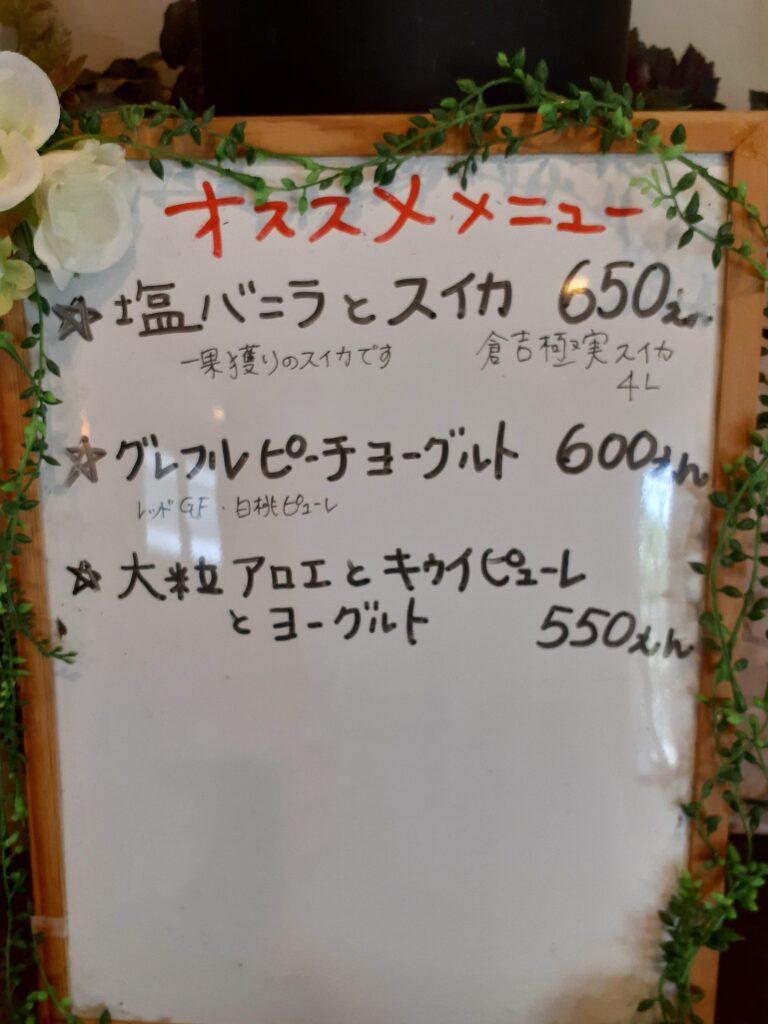 オススメメニュー
☆塩バニラとスイカ 650えん
一果獲りのスイカです 倉吉極実スイカ
4L
☆グレフルピーチヨーグルト 600えん
レッドGF・白桃ピューレ
☆大粒アロエとキウイピューレ
とヨーグルト 550えん